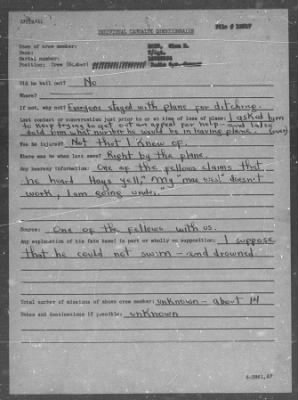 INDIVIDUAL CASUALTY QUESTIONNAIRE
Name of crew member:
Rank:
Serial number:
Position: Crew
Did he bail out? No
Where?
If not, why not? Everyone stayed with plane for ditching.
Last contact or conversation just prior to or at time of loss of plane: I asked him
to keep trying to get out an appeal for help - and I also
told him what number he would be in leaving plane.
Was he injured? Not that I knew of.
Where was he when last seen? Right by the plane.
Any hearsay information: One of the fellows claims that
he heard Hays yell, "My "mae west" doesn't
work, I am going under."
Source: One of the fellows with us.
Any explanation of his fate based in part or wholly on supposition: I suppose
that he could not swim - and drowned
Total number of missions of above crew member: unknown - about 14
Dates and destinations if possible: unknown